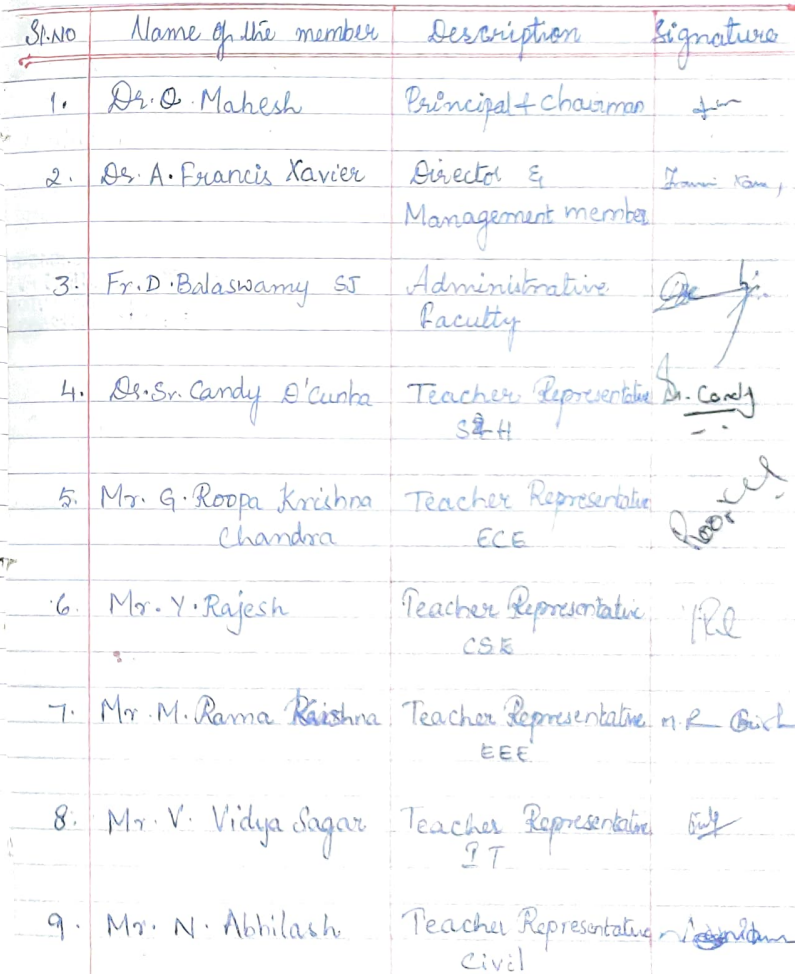 Sl.No Name of the member Description Signature
1. Dr. O. Mahesh Principal & Chairman
2. Dr. A. Francis Xavier Director &
Management member
3. Fr. D. Balaswamy SJ Administrative
Faculty
4. Dr. Sr. Candy D'Cunha Teacher Representative Dr. Candy
S&H
5. Mr. G. Roopa Krishna Teacher Representative
Chandra ECE
6. Mr. Y. Rajesh Teacher Representative
CSE
7. Mr. M. Rama Krishna Teacher Representative M. R
EEE
8. Mr. V. Vidya Sagar Teacher Representative
IT
9. Mr. N. Abhilash Teacher Representative
Civil